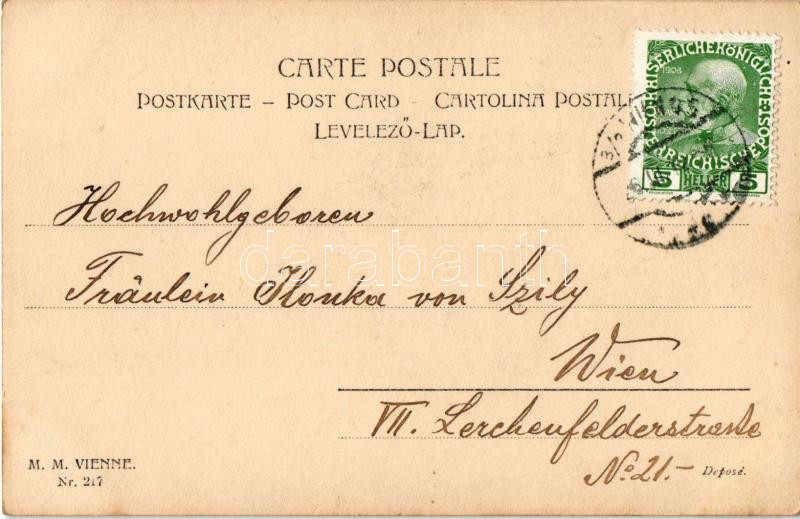 CARTE POSTALE
POSTKARTE – POST CARD - CARTOLINA POSTALE
LEVELEZŐ-LAP.
KAISERLICHE KÖNIGLICHE
POST
ÖSTERREICHISCHE
1908
5 HELLER 5
Hochwohlgeboren
darabanth
Fräulein Ilonka von Szily
Wien
VII. Lerchenfelderstrasse
No. 21.-
M. M. VIENNE.
Nr. 217
Deposé.